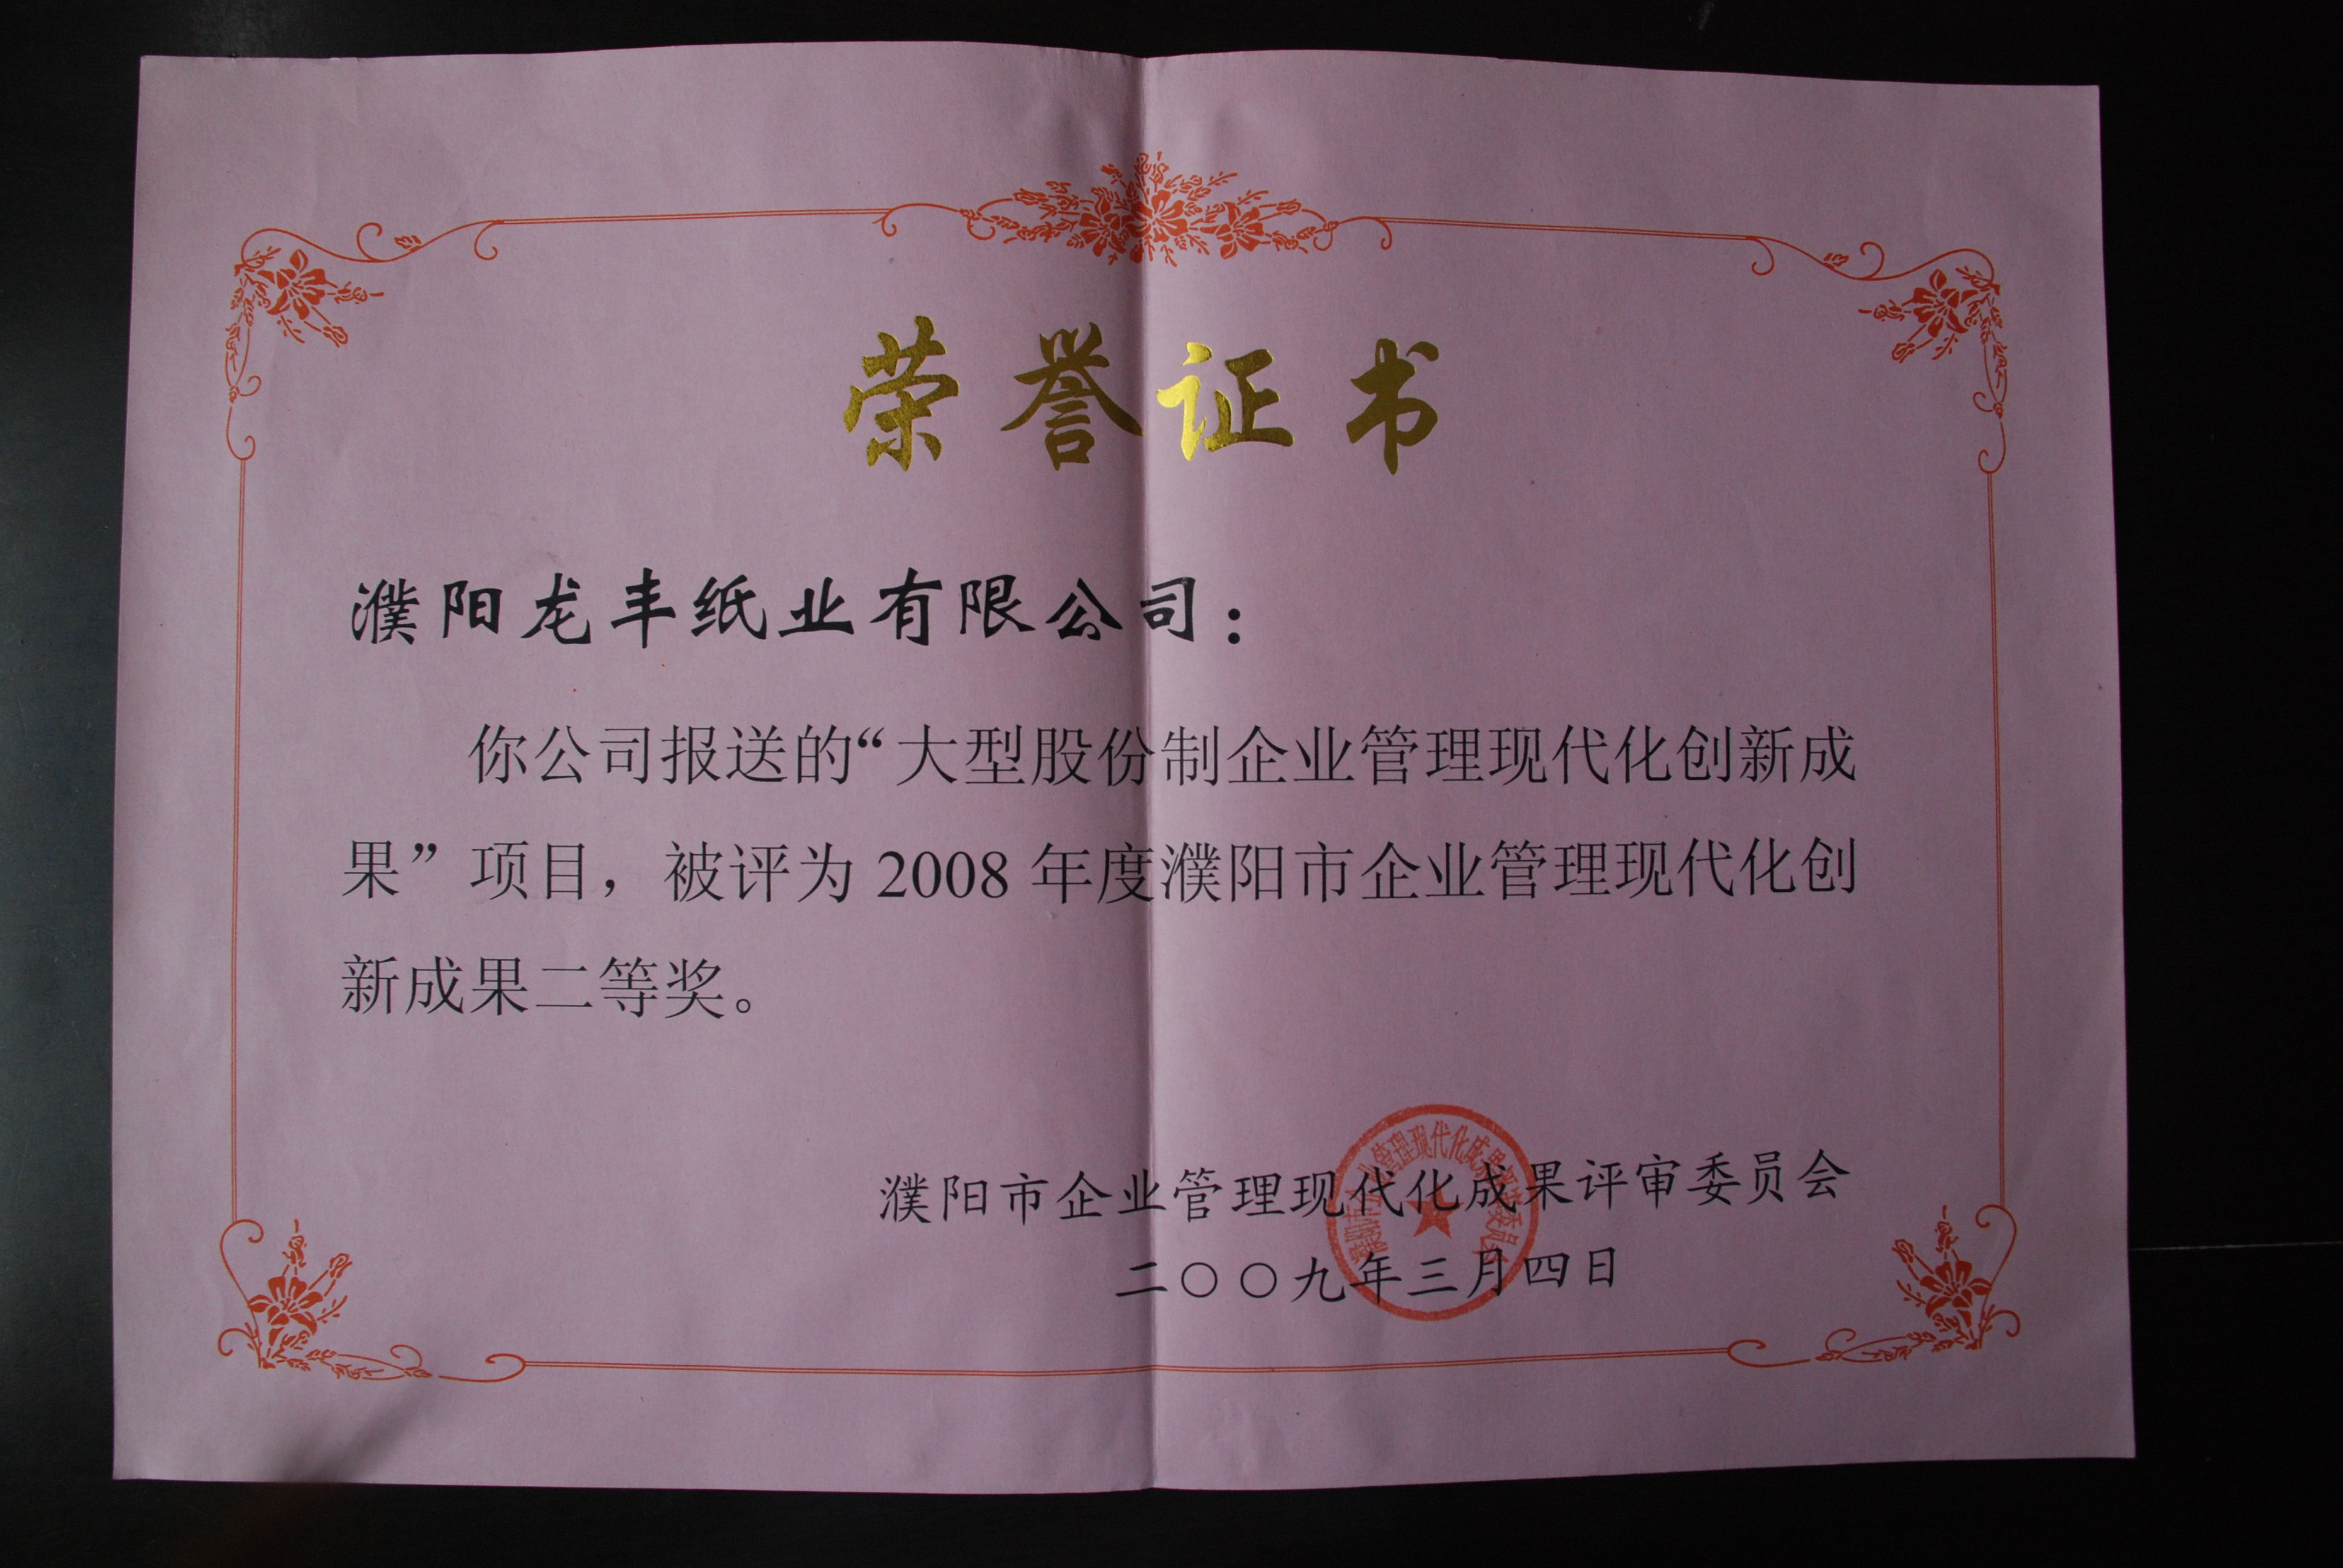 荣誉证书
濮阳龙丰纸业有限公司：
你公司报送的“大型股份制企业管理现代化创新成
果”项目，被评为 2008 年度濮阳市企业管理现代化创
新成果二等奖。
濮阳市企业管理现代化成果评审委员会
二〇〇九年三月四日
濮阳市企业管理现代化成果评审委员会